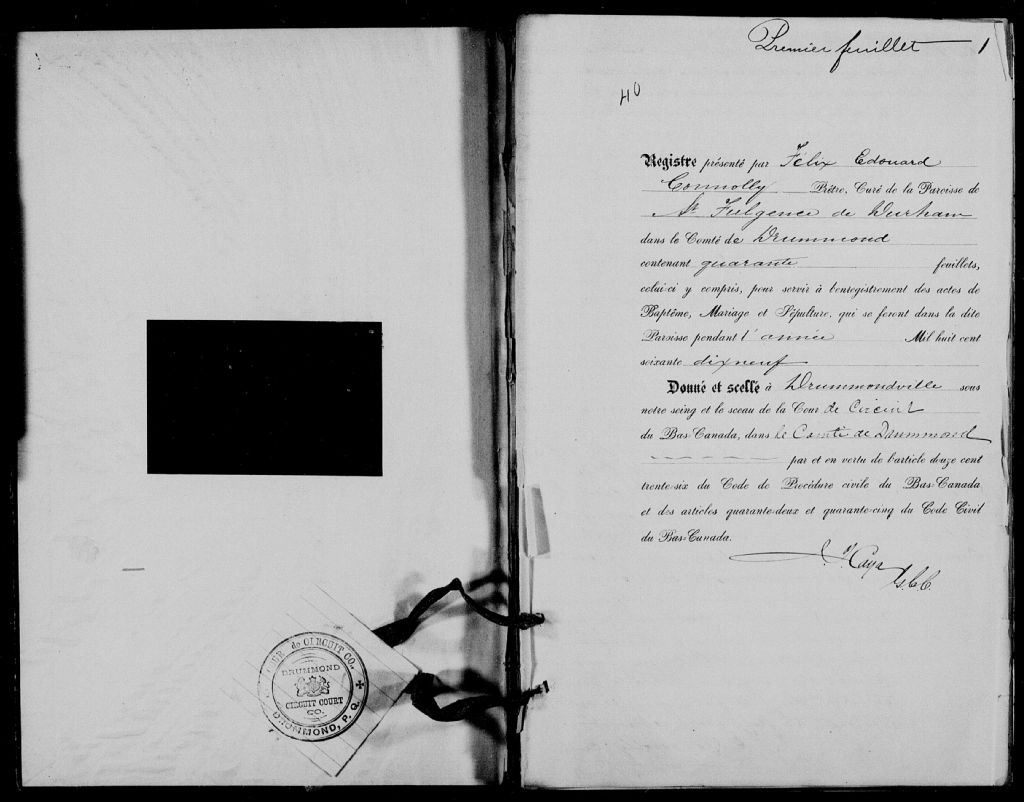 Premier feuillet — 1
40
Registre présenté par Félix Edouard
Connolly Prêtre, Curé de la Paroisse de
St Fulgence de Durham
dans le Comté de Drummond
contenant quarante feuillets,
celui-ci y compris, pour servir à l'enregistrement des actes de
Baptême, Mariage et Sépulture, qui se feront dans la dite
Paroisse pendant l'année Mil huit cent
soixante dix neuf
Donné et scellé à Drummondville sous
notre seing et le sceau de la Cour de Circuit
du Bas-Canada, dans le Comté de Drummond
par et en vertu de l'article douze cent
trente-six du Code de Procédure civile du Bas-Canada
et des articles quarante-deux et quarante-cinq du Code Civil
du Bas-Canada.
G.C.C.
de CIRCUIT CO.
DRUMMOND
CIRCUIT COURT
CO.
DRUMMOND, P. Q.